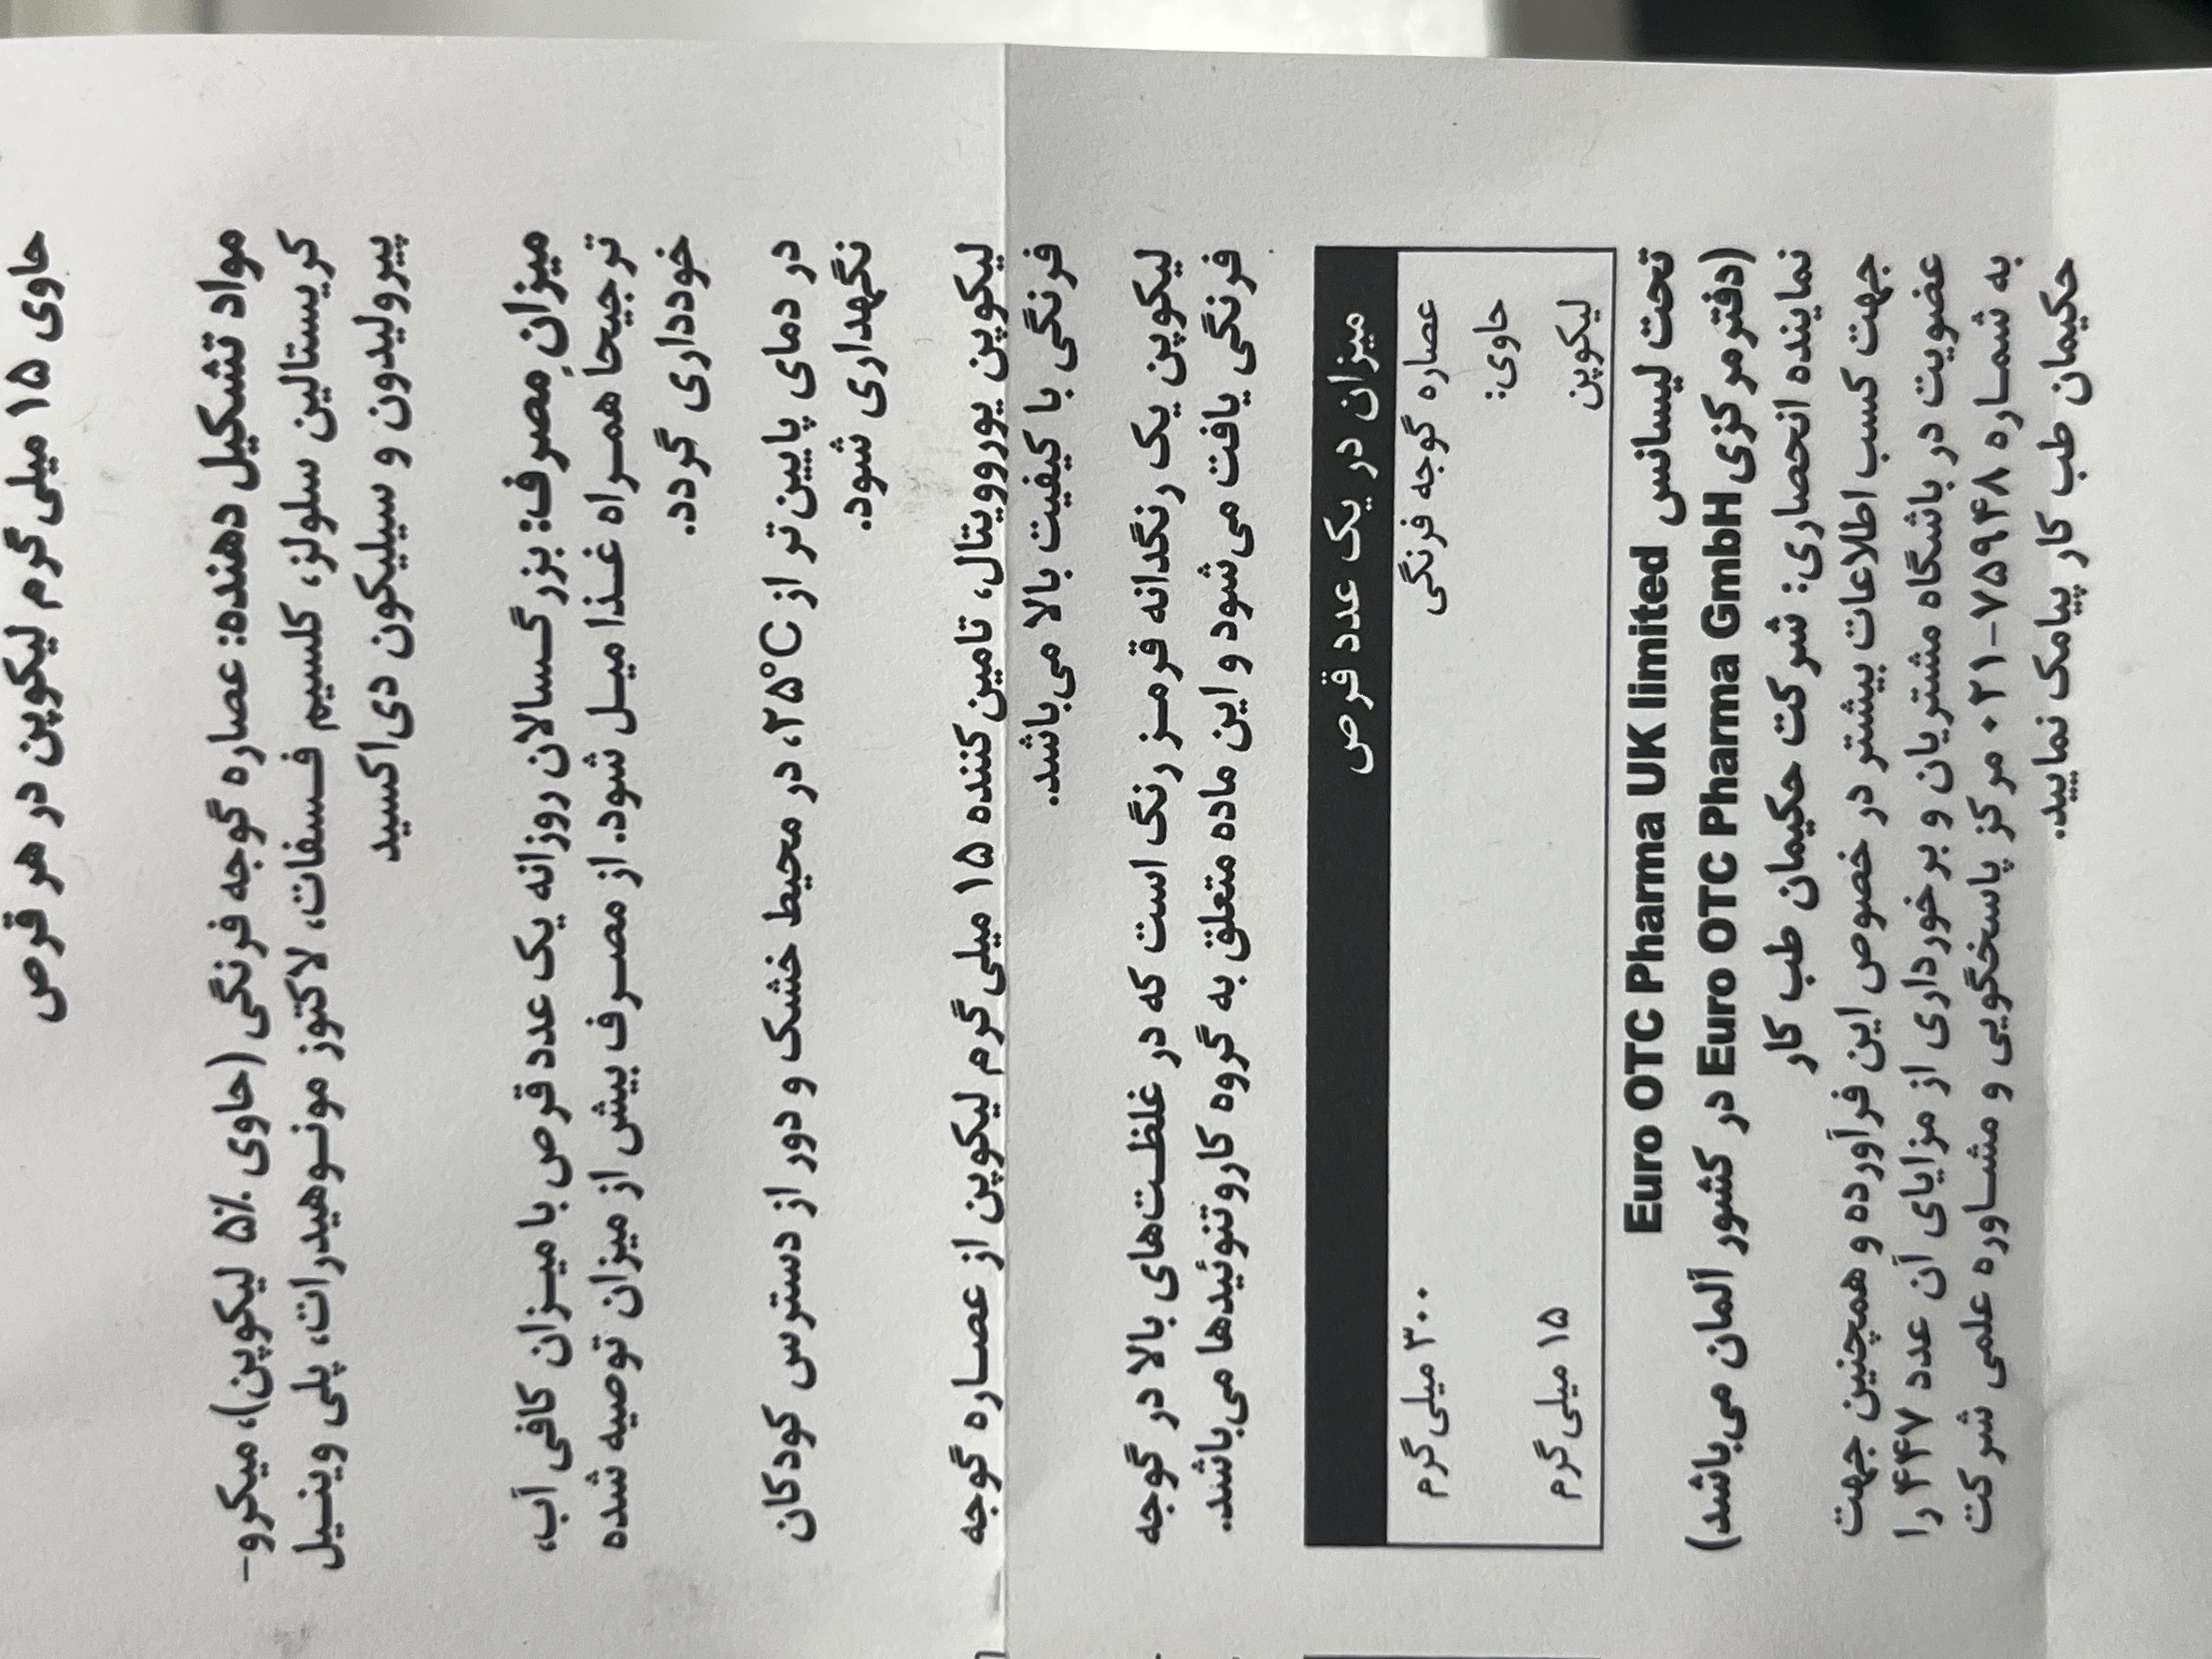 حاوی ۱۵ میلی گرم لیکوپن در هر قرص
مواد تشکیل دهنده: عصاره گوجه فرنگی (حاوی ۵٪ لیکوپن)، میکرو-
کریستالین سلولز، کلسیم فسفات، لاکتوز مونوهیدرات، پلی وینیل
پیرولیدون و سیلیکون دی‌اکسید
میزانِ مصرف: بزرگسالان روزانه یک عدد قرص با میزان کافی آب،
ترجیحا همراه غذا میل شود. از مصرف بیش از میزان توصیه شده
خودداری گردد.
در دمای پایین‌تر از ۲۵°C، در محیط خشک و دور از دسترس کودکان
نگهداری شود.
لیکوپن یوروویتال، تامین‌کننده ۱۵ میلی گرم لیکوپن از عصاره گوجه
فرنگی با کیفیت بالا می‌باشد.
لیکوپن یک رنگدانه قرمز رنگ است که در غلظت‌های بالا در گوجه
فرنگی یافت می‌شود و این ماده متعلق به گروه کاروتنوئیدها می‌باشد.
میزان در یک عدد قرص
عصاره گوجه فرنگی ۳۰۰ میلی گرم
حاوی:
لیکوپن ۱۵ میلی گرم
تحت لیسانس Euro OTC Pharma UK limited
(دفترمرکزی Euro OTC Pharma GmbH در کشور آلمان می‌باشد)
نماینده انحصاری: شرکت حکیمان طب کار
جهت کسب اطلاعات بیشتر در خصوص این فرآورده و همچنین جهت
عضویت در باشگاه مشتریان و برخورداری از مزایای آن عدد ۴۴۷ را
به شماره ۷۵۹۴۸-۰۲۱ مرکز پاسخگویی و مشاوره علمی شرکت
حکیمان طب کار پیامک نمایید.